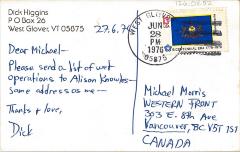 Dick Higgins
PO Box 26
West Glover, VT 05875
27.6.76
WEST GLOVER
JUN
28
PM
1976
05875
Dear Michael—
Please send a list of wet
operations to Alison Knowles—
Same address as me—
Thanks & love,
Dick
Michael Morris
WESTERN FRONT
303 E. 8th Ave
Vancouver, BC V5T 1S1
CANADA